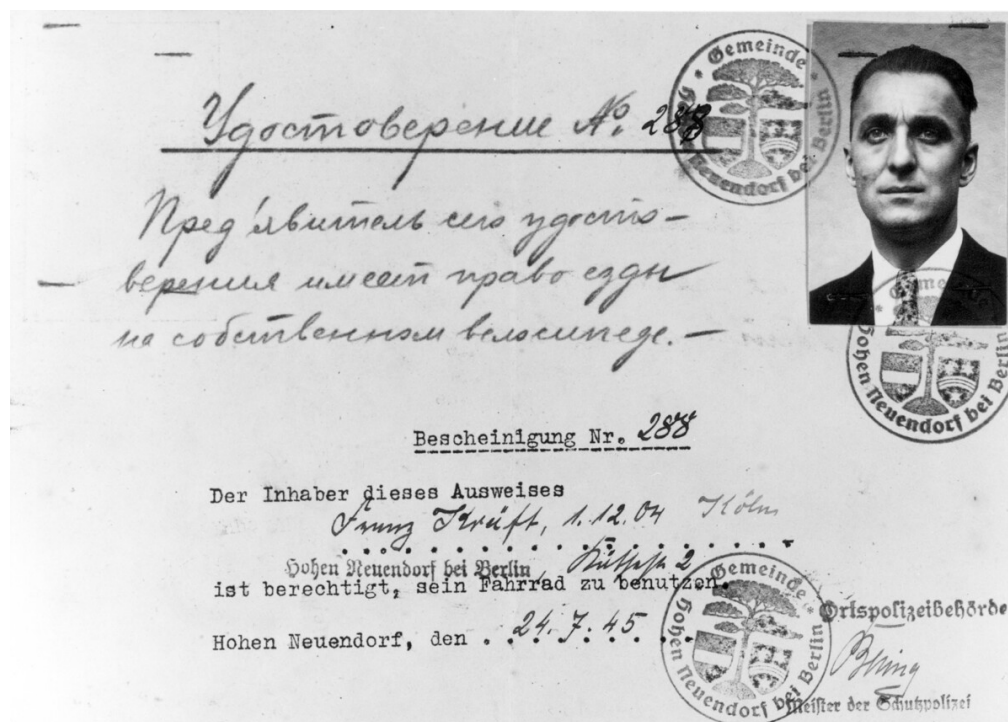 Удостоверение №. 288
Пред'явитель сего удосто-
верения имеет право езды
на собственном велосипеде. —
Gemeinde
Hohen Neuendorf bei Berlin
Gemeinde
Hohen Neuendorf bei Berlin
Bescheinigung Nr. 288
Der Inhaber dieses Ausweises
Franz Kräft, 1.12.04 Köln
Hohen Neuendorf bei Berlin, 2
ist berechtigt, sein Fahrrad zu benutzen.
Hohen Neuendorf, den 24.7.45
Gemeinde
Hohen Neuendorf bei Berlin
Ortspolizeibehörde
Meister der Schutzpolizei